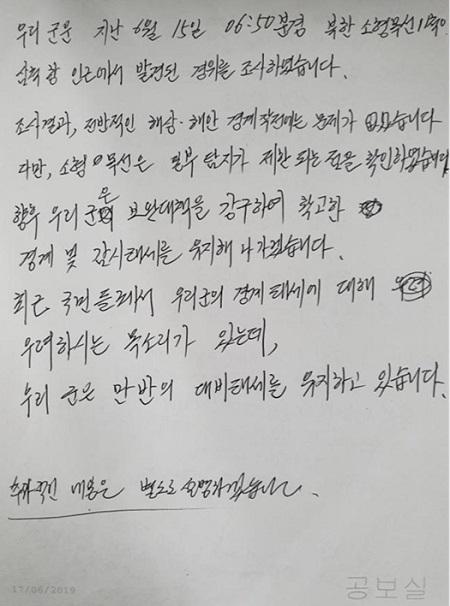 우리 군은 지난 6월 15일 06:50분경 북한 소형목선 1척이
삼척항 인근에서 발견된 경위를 조사하였습니다.
조사결과, 전반적인 해상·해안 경계작전에는 문제가 없었습니다
다만, 소형 목선은 일부 탐지가 제한 되는 점을 확인하였습니다
향후 우리 군은 보완대책을 강구하여 확고한
경계 및 감시태세를 유지해 나가겠습니다.
최근 국민들께서 우리군의 경계태세에 대해
우려하시는 목소리가 있는데,
우리 군은 만반의 대비태세를 유지하고 있습니다.
추가적인 내용은 별도로 설명하겠습니다.
17/06/2019
공보실